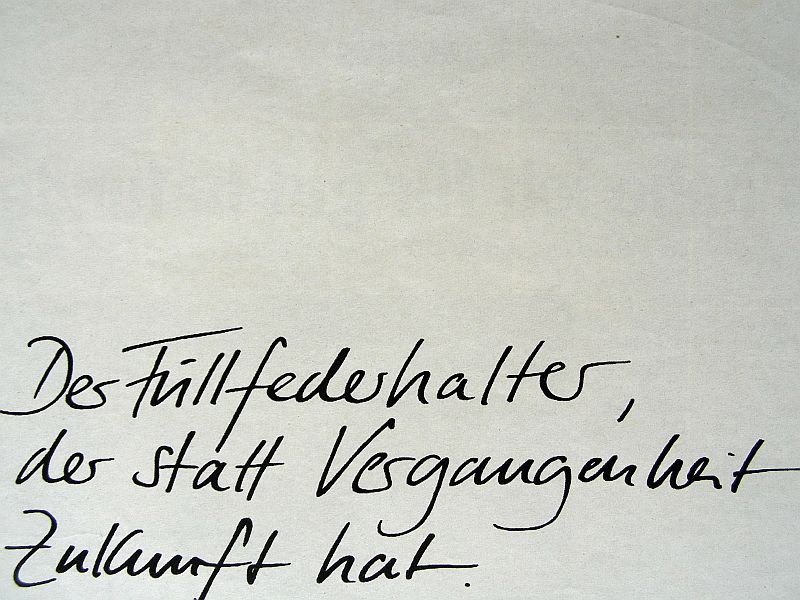 Der Füllfederhalter,
der statt Vergangenheit
Zukunft hat.